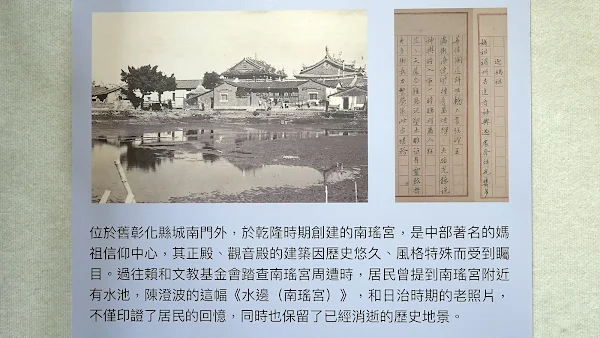 迎媽祖
位於舊彰化縣城南門外，於乾隆時期創建的南瑤宮，是中部著名的媽
祖信仰中心，其正殿、觀音殿的建築因歷史悠久、風格特殊而受到矚
目。過往賴和文教基金會踏查南瑤宮周遭時，居民曾提到南瑤宮附近
有水池，陳澄波的這幅《水邊（南瑤宮）》，和日治時期的老照片，
不僅印證了居民的回憶，同時也保留了已經消逝的歷史地景。